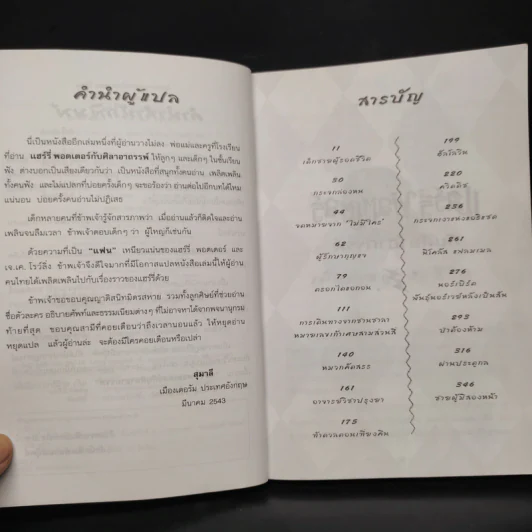 คำนำผู้แปล
นี่เป็นหนังสืออีกเล่มหนึ่งที่ผู้อ่านวางไม่ลง พ่อแม่และครูที่โรงเรียน
ที่อ่าน แฮร์รี่ พอตเตอร์กับศิลาอาถรรพ์ ให้ลูกๆ และเด็กๆ ในชั้นเรียน
ฟัง ต่างบอกเป็นเสียงเดียวกันว่า เป็นหนังสือที่สนุกทั้งคนอ่าน เพลิดเพลิน
ทั้งคนฟัง และไม่แปลกที่บ่อยครั้งเด็กๆ จะขอร้องว่า อ่านต่อไปอีกบทได้ไหม
แน่นอน บ่อยครั้งคนอ่านก็ไม่ปฏิเสธ
เด็กหลายคนที่ข้าพเจ้ารู้จักสารภาพว่า เมื่ออ่านแล้วก็ติดใจและอ่าน
เพลินจนลืมเวลา ข้าพเจ้าตอบเด็กๆ ว่า ผู้ใหญ่ก็เช่นกัน
ด้วยความที่เป็น "แฟน" เหนียวแน่นของแฮร์รี่ พอตเตอร์ และ
เจ.เค. โรว์ลิ่ง ข้าพเจ้าจึงดีใจมากที่มีโอกาสแปลหนังสือเล่มนี้ให้ผู้อ่าน
คนไทยได้เพลิดเพลินไปกับเรื่องราวของแฮร์รี่ด้วย
ข้าพเจ้าขอขอบคุณญาติสนิทมิตรสหาย รวมทั้งลูกศิษย์ที่ช่วยอ่าน
ชื่อตัวละคร อธิบายศัพท์และธรรมเนียมต่างๆ ที่ไม่อาจหาได้จากพจนานุกรม
ท้ายที่สุด ขอบคุณสามีที่คอยเตือนว่าถึงเวลานอนแล้ว ให้หยุดอ่าน
หยุดแปล แล้วผู้อ่านล่ะ จะต้องมีใครคอยเตือนหรือเปล่า
สุมาลี
เมืองเดอรัม ประเทศอังกฤษ
มีนาคม 2543
สารบัญ
11
เด็กชายผู้รอดชีวิต
30
กระจกล่องหน
44
จดหมายจาก "ไม่มีใคร"
62
ผู้รักษากุญแจ
79
ตรอกไดแอกอน
111
การเดินทางจากชานชาลา
หมายเลขเก้าเศษสามส่วนสี่
140
หมวกคัดสรร
161
อาจารย์วิชาปรุงยา
175
ท้าดวลตอนเที่ยงคืน
199
ฮัลโลวีน
220
ควิดดิช
236
กระจกเงาแห่งแอริเซด
261
นิโคลัส แฟลมเมล
276
นอร์เบิร์ต
พันธุ์นอร์เวย์หลังเป็นสัน
293
ป่าต้องห้าม
316
ผ่านประตูกล
346
ชายผู้มีสองหน้า